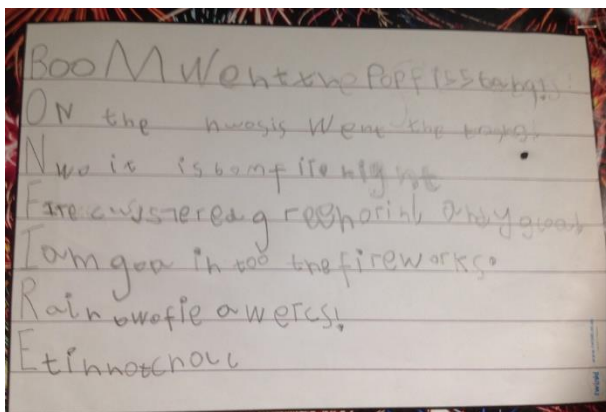 BooM Went the Pop fiss bang!
ON the nwosis Went the
Nwo it is bomfire night
Fire green orink and
I am goa in too the fireworks.
Rain bwofie awercs!
Etinnotchocc